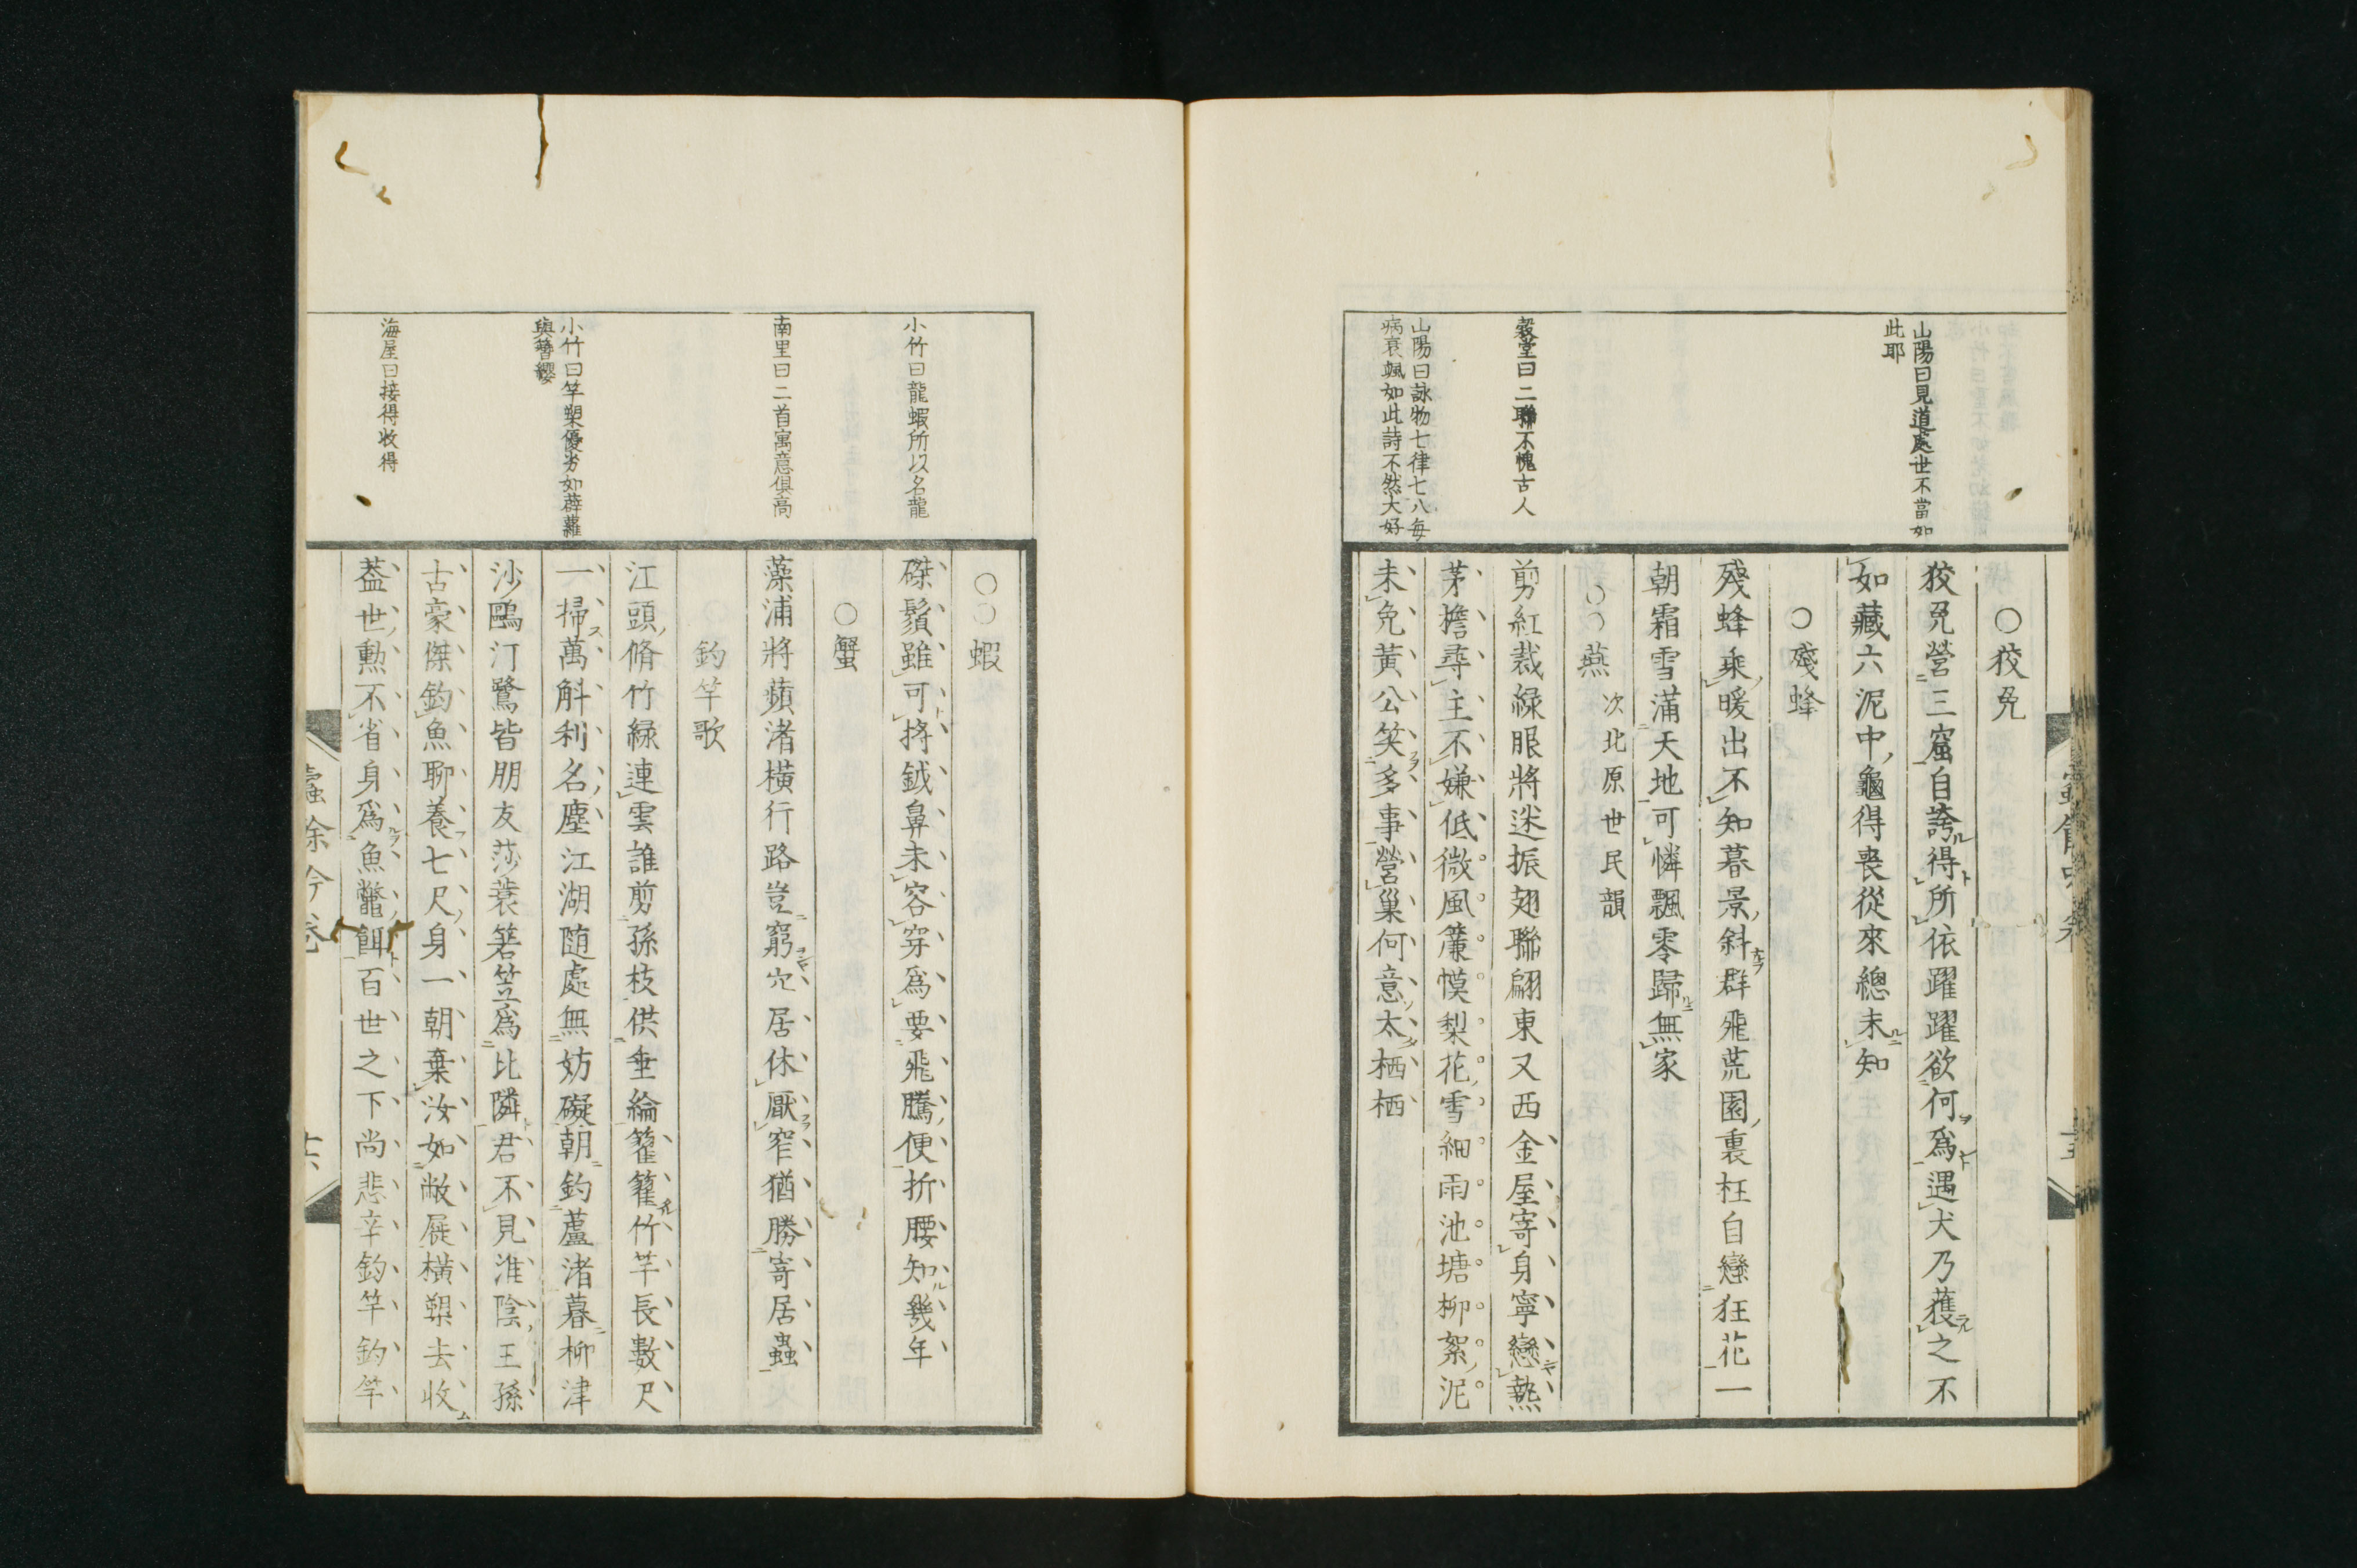 山陽曰見道處世不當如
此耶
穀堂曰二聯不愧古人
山陽曰詠物七律七八每
病衰颯如此詩不然大好
○狡兎
狡兎營三窟自誇得所依躍躍欲何爲遇犬乃獲之不
如藏六泥中龜得喪從來總未知
○殘蜂
殘蜂乘暖出不知暮景斜群飛荒園裏枉自戀狂花一
朝霜雪滿天地可憐飄零歸無家
○○燕 次北原世民韻
剪紅裁綠眼將迷振翅聯翩東又西金屋寄身寧戀熱
茅檐尋主不嫌低微風簾幙梨花雪細雨池塘柳絮泥
未免黃公笑多事營巢何意太栖栖
小竹曰龍蝦所以名龍
南里曰二首寓意俱高
小竹曰竿槊優劣如薜蘿
與簪纓
海屋曰接得收得
○○蝦
磔鬚雖可捋鉞鼻未容穿爲要飛騰便折腰知幾年
○蟹
藻浦將蘋渚橫行路豈窮穴居休厭窄猶勝寄居蟲
釣竿歌
江頭脩竹綠連雲誰剪孫枝供垂綸籊籊竹竿長數尺
一掃萬斛利名塵江湖随處無妨礙朝釣蘆渚暮柳津
沙鷗汀鷺皆朋友莎蓑箬笠爲比隣君不見淮陰王孫
古豪傑釣魚聊養七尺身一朝棄汝如敝屣橫槊去收
葢世勳不省身爲魚鼈餌百世之下尚悲辛釣竿釣竿
蠧餘吟卷 十六